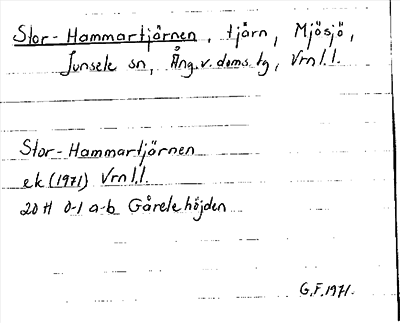 Stor-Hammartjärnen, tjärn, Mjösjö,
Junsele sn, Ång. v. doms. tg, Vrnl.l.
Stor-Hammartjörnen
ek (1971) Vrnl.l.
20 H 0-1 a-b Gårelehöjden
G.F. 1971.